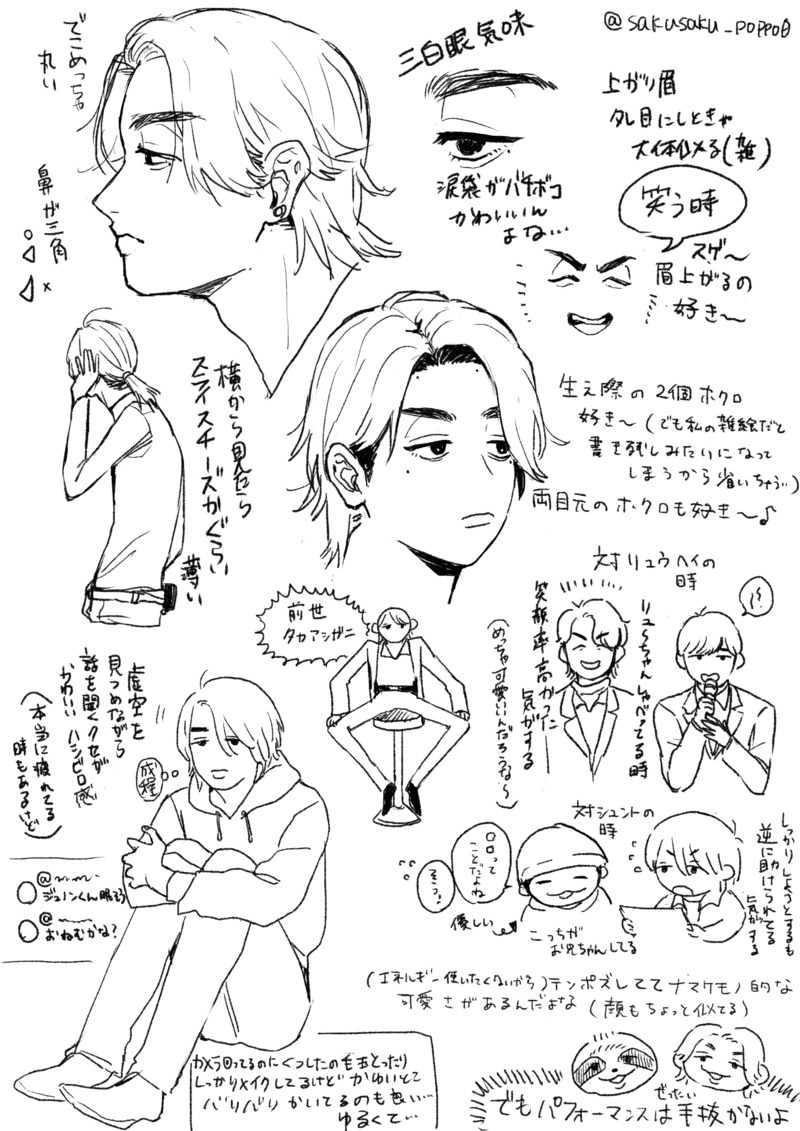 @sakusaku_poppo日
でこめっちゃ
丸い
三白眼気味
上がり眉
タレ目にしときゃ
大体似る(雑)
鼻が三角
涙袋がバチボコ
かわいいん
よな…
笑う時
スゲ〜
眉上がるの
好き〜
横から見たら
スライスチーズぐらい
薄い
生え際の2個ホクロ
好き〜(でも私の雑絵だと
書き残しみたいになって
しまうから省いちゃう…)
両目元のホクロも好き〜♪
対リュウヘイの
時
笑顔率高かった
気がする
(めっちゃ可愛いんだろうな〜)
リューちゃんしゃべってる時
前世
タカアシガニ
虚空を
見つめながら
話を聞くクセが
かわいい ハシビロ感
(本当に疲れてる
時もあるけど)
成程
@
ジュノンくん眠そう
@
おねむかな?
対シュントの
時
しっかりしようとするも
逆に助けられてる
気がする
□□って
ことだよね
そう♪
優しい
こっちが
お兄ちゃんしてる
(エネルギー使いたくないから)テンポズレててナマケモノ的な
可愛さがあるんだよな (顔もちょっと似てる)
カメラ回ってるのにくつしたの毛玉とったり
しっかりメイクしてるけどかゆいとこ
バリバリかいてるのも良い…
ゆるくて…
でもパフォーマンスはぜったい手抜かないよ